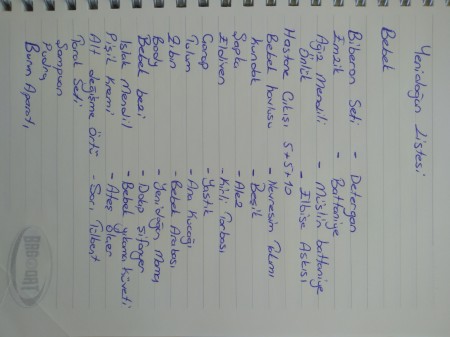 Yenidoğan Listesi
Bebek
Biberon Seti - Detergan
Emzik - Battaniye
Ağız Mendili - Müslin battaniye
Önlük - Elbise Askısı
Hastane Çıkışı 5+5+10
Bebek havlusu - Nevresim Takımı
Kundak - Beşik
Şapka - Alez
Eldiven - Kirli Torbası
Çorap - Yastık
Tulum - Ana Kucağı
Zıbın - Bebek Arabası
Body - Yenidoğan Mama
Bebek bezi - Dolap Şifonyer
Islak Mendil - Bebek yıkama küveti
Pişik Kremi - Ateş Ölçer
Alt değişme Örtü - Sarı Tülbent
Tarak Seti
Şampuan
Pudra
Burun Aparatı